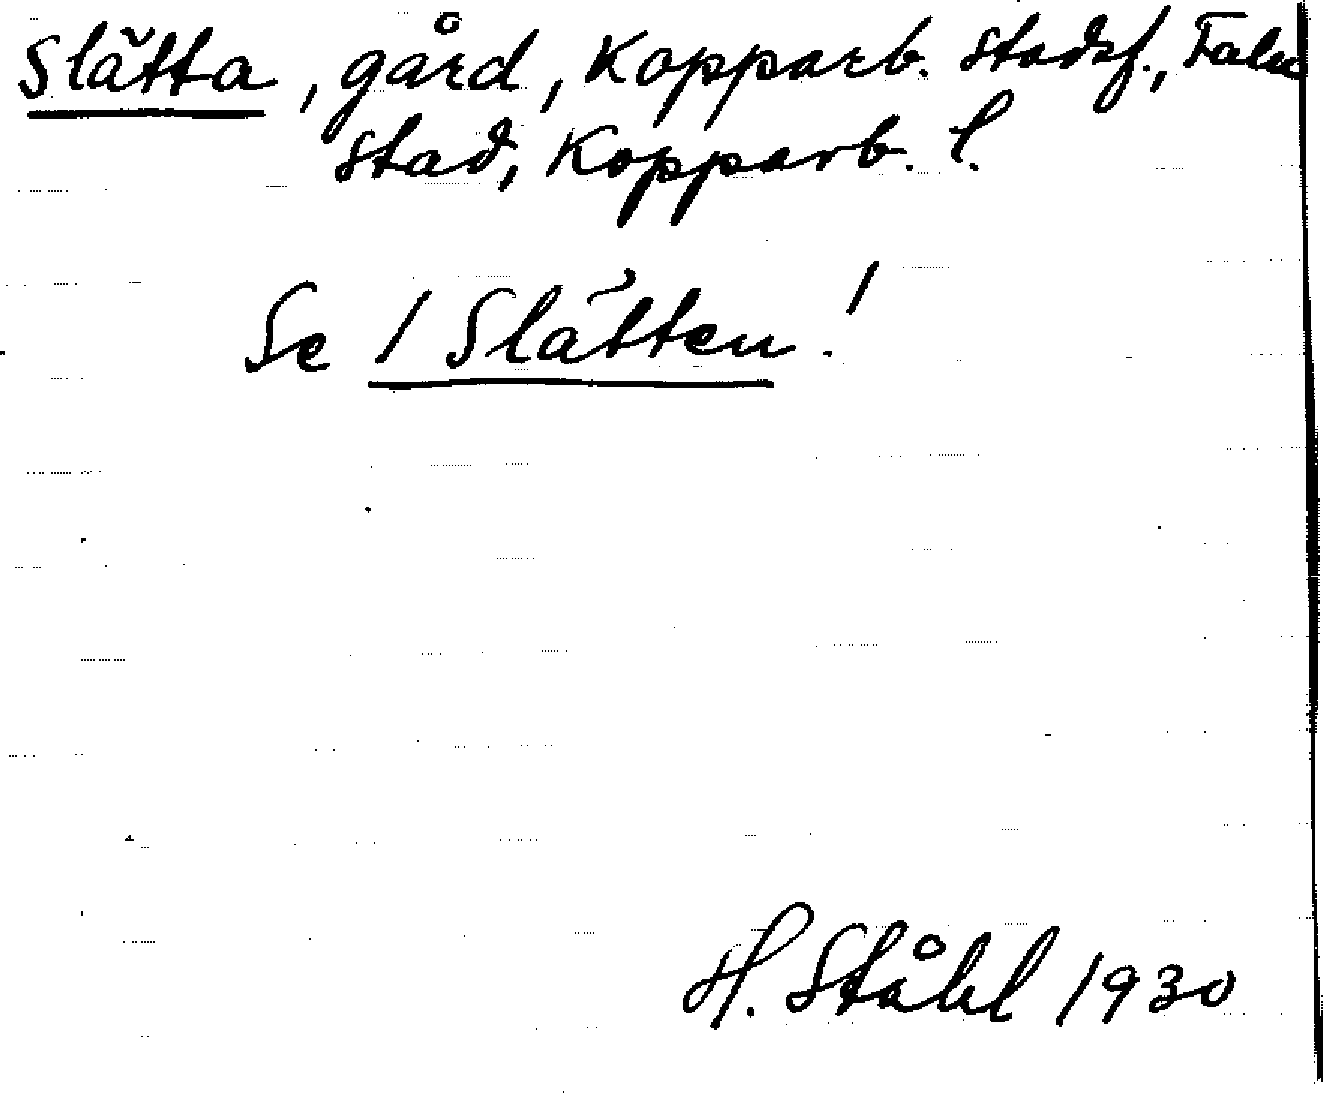 Slätta, gård, Kopparb. stadsf., Falu
stad, Kopparb. l.
Se / Slätten. /
H. Ståhl 1930